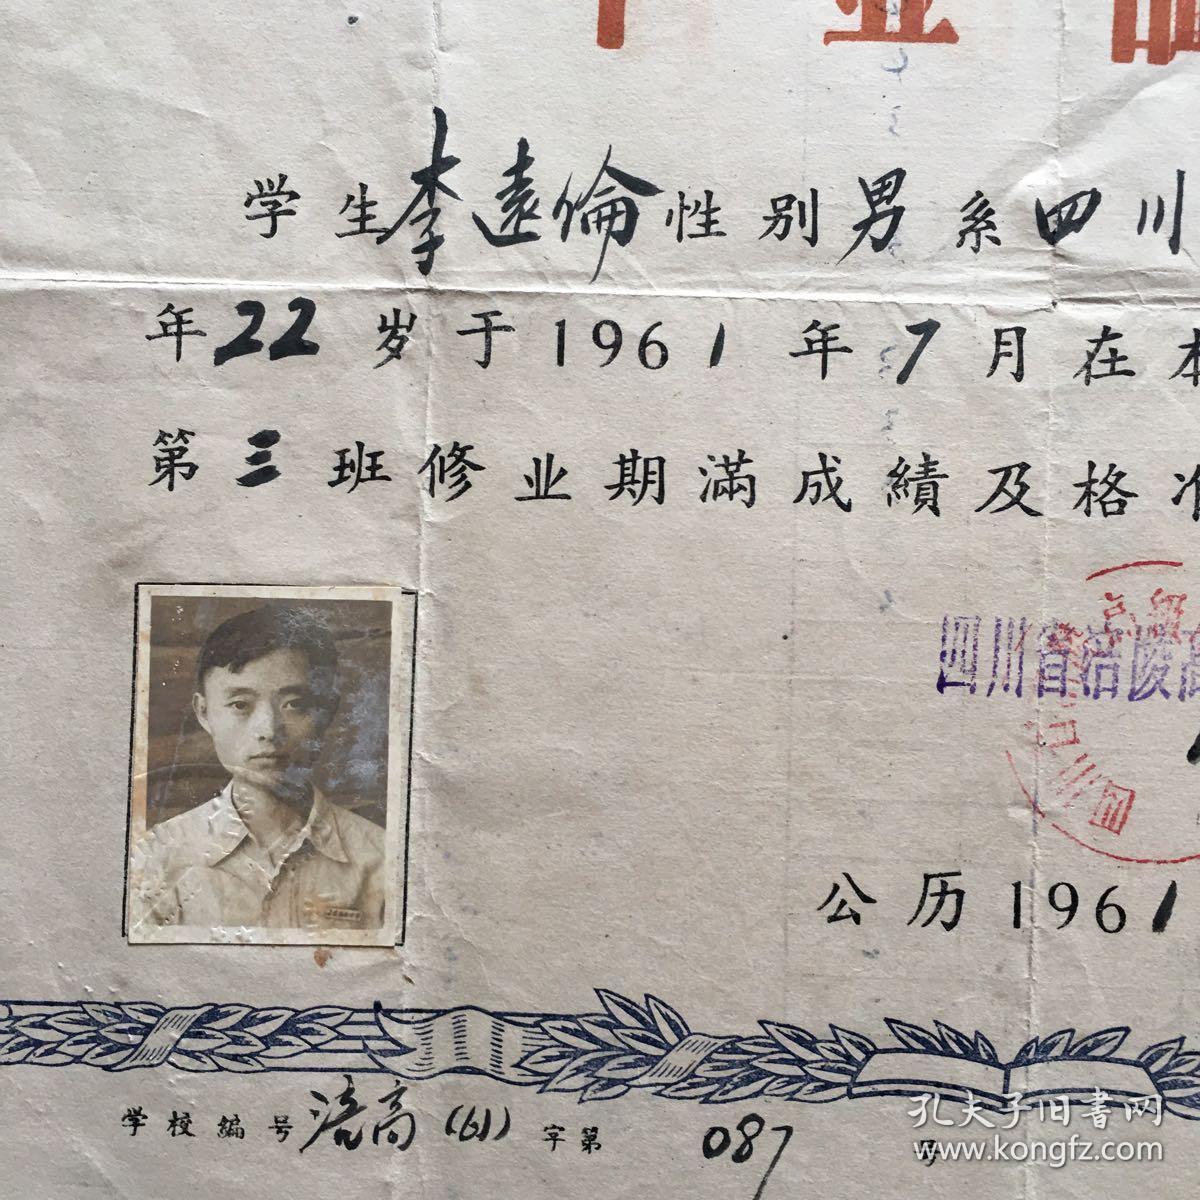 业
学生李遠倫性别男系四川
年22岁于1961年7月在本
第三班修业期滿成績及格准
四川省涪陵高
公历1961
学校编号涪高(61)字第087号
孔夫子旧书网
www.kongfz.com